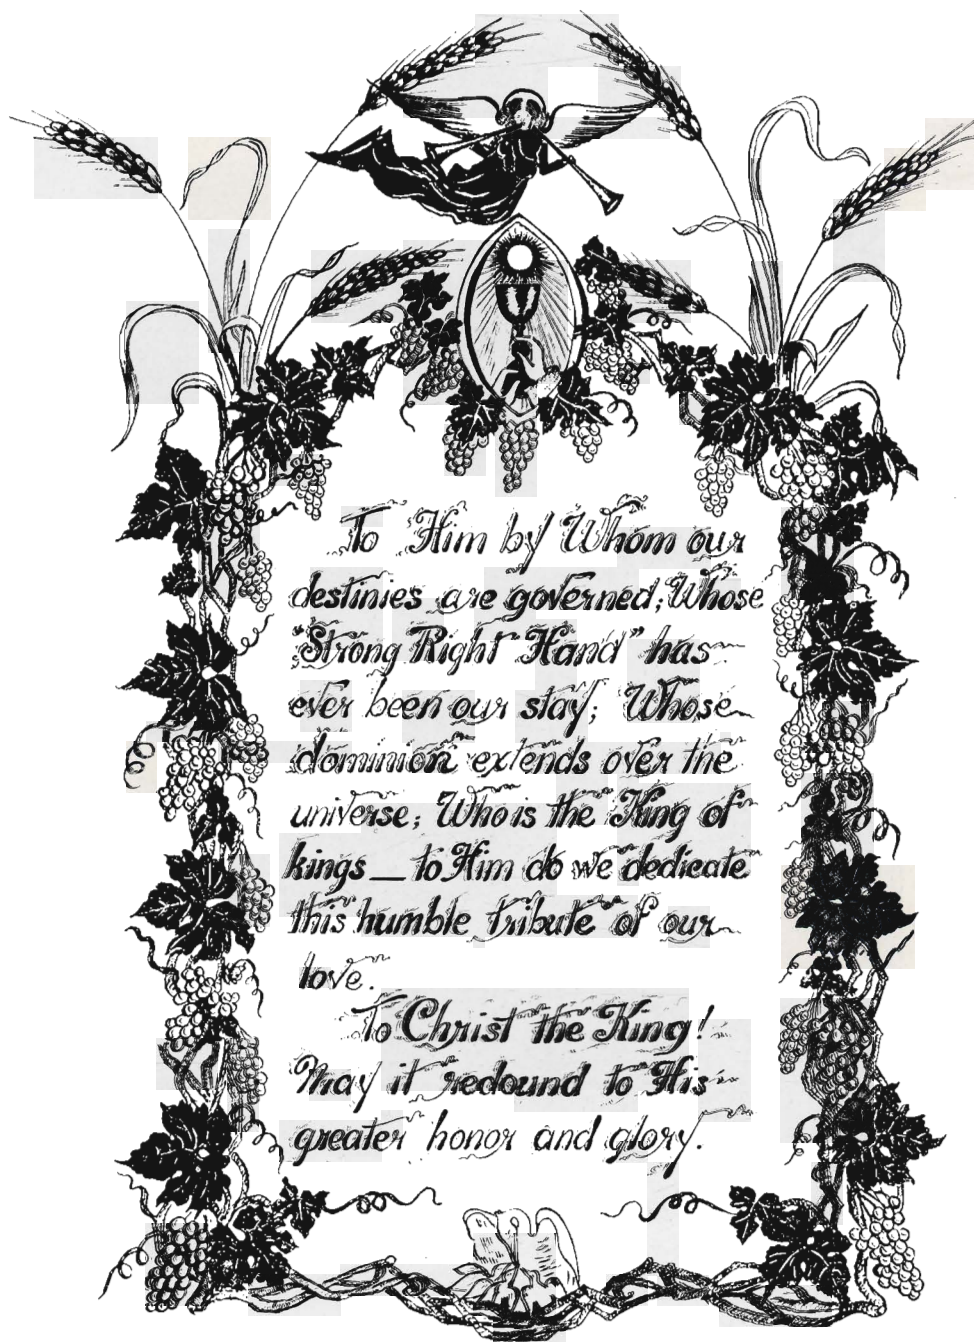 To Him by Whom our
destinies are governed; Whose
"Strong Right Hand" has
ever been our stay; Whose
dominion extends over the
universe; Who is the King of
kings — to Him do we dedicate
this humble tribute of our
love.
To Christ the King!
May it redound to His
greater honor and glory.